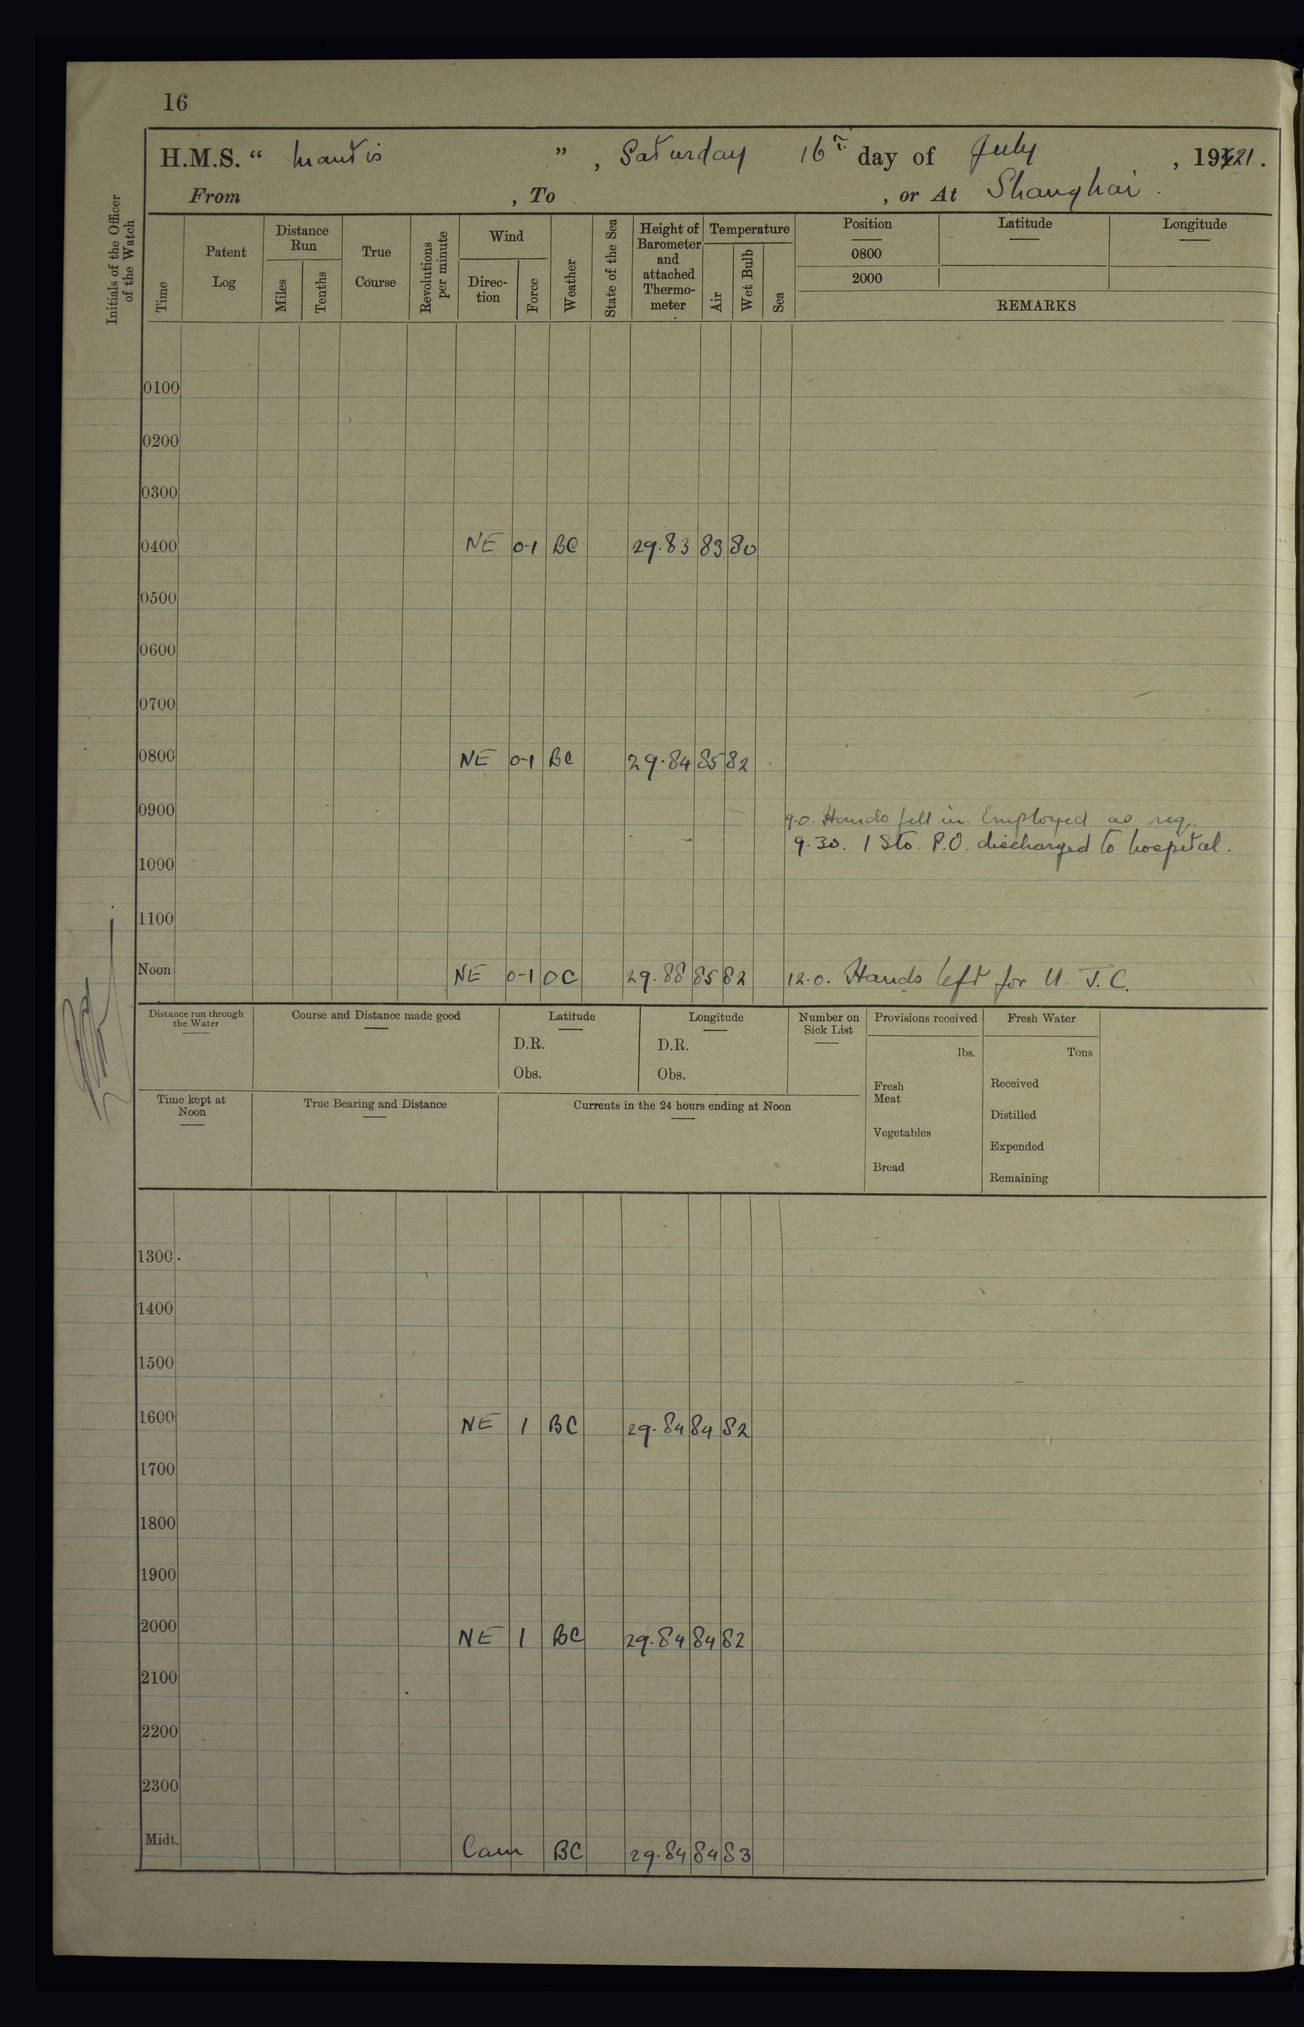 16
H.M.S. “ Mantis ” , Saturday 16th day of July , 1921 .
From , To , or At Shanghai .
Initials of the Officer of the Watch
Time
Patent Log
Distance Run
Miles
Tenths
True Course
Revolutions per minute
Wind
Direc-tion
Force
Weather
State of the Sea
Height of Barometer and attached Thermo-meter
Temperature
Air
Wet Bulb
Sea
Position
Latitude
Longitude
0800
2000
REMARKS
0100
0200
0300
0400 NE 0-1 BC 29.83 83 80
0500
0600
0700
0800 NE 0-1 BC 29.84 85 82
0900 9.0. Hands fell in. Employed as req.
9.30. 1 Sto. P.O. discharged to hospital.
1000
1100
Noon NE 0-1 OC 29.88 85 82 12.0. Hands left for U. J. C.
Distance run through the Water
Course and Distance made good
Latitude
D.R.
Obs.
Longitude
D.R.
Obs.
Number on Sick List
Provisions received
lbs.
Fresh Meat
Vegetables
Bread
Fresh Water
Tons
Received
Distilled
Expended
Remaining
Time kept at Noon
True Bearing and Distance
Currents in the 24 hours ending at Noon
1300
1400
1500
1600 NE 1 BC 29.84 84 82
1700
1800
1900
2000 NE 1 BC 29.84 84 82
2100
2200
2300
Midt. Cam BC 29.84 84 83